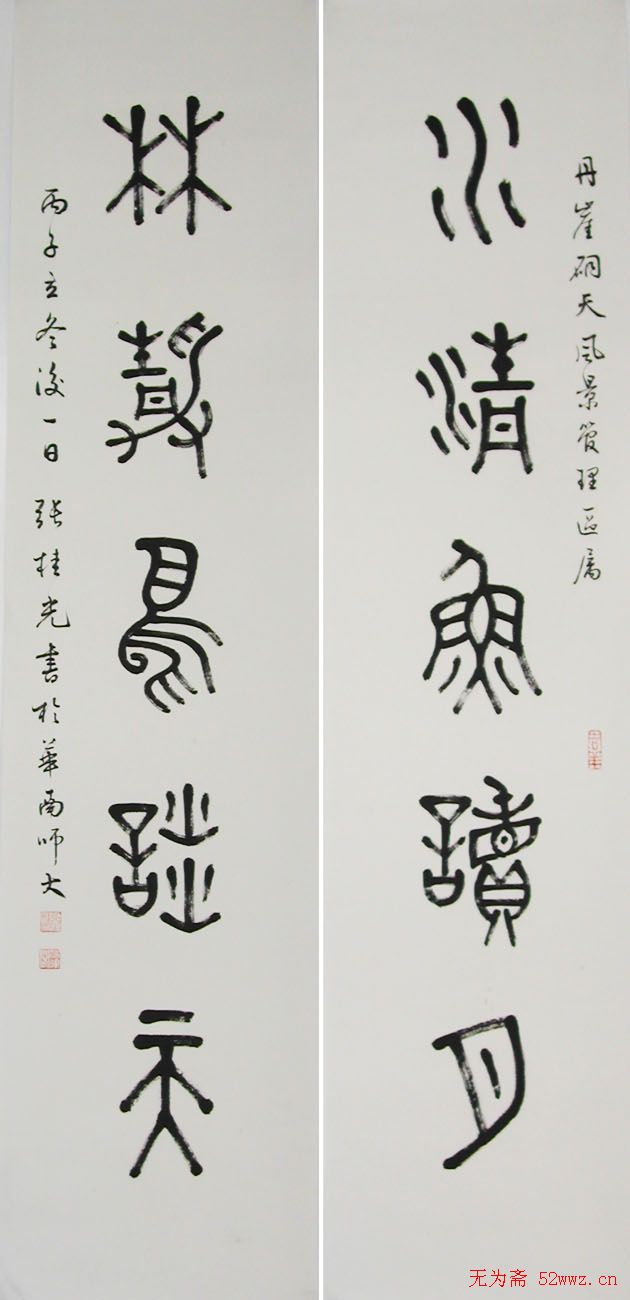 丹崖碉天風景管理區屬
水清魚讀月
林靜鳥談天
丙子立冬後一日 張桂光書於華南師大
无为斋 52wwz.cn